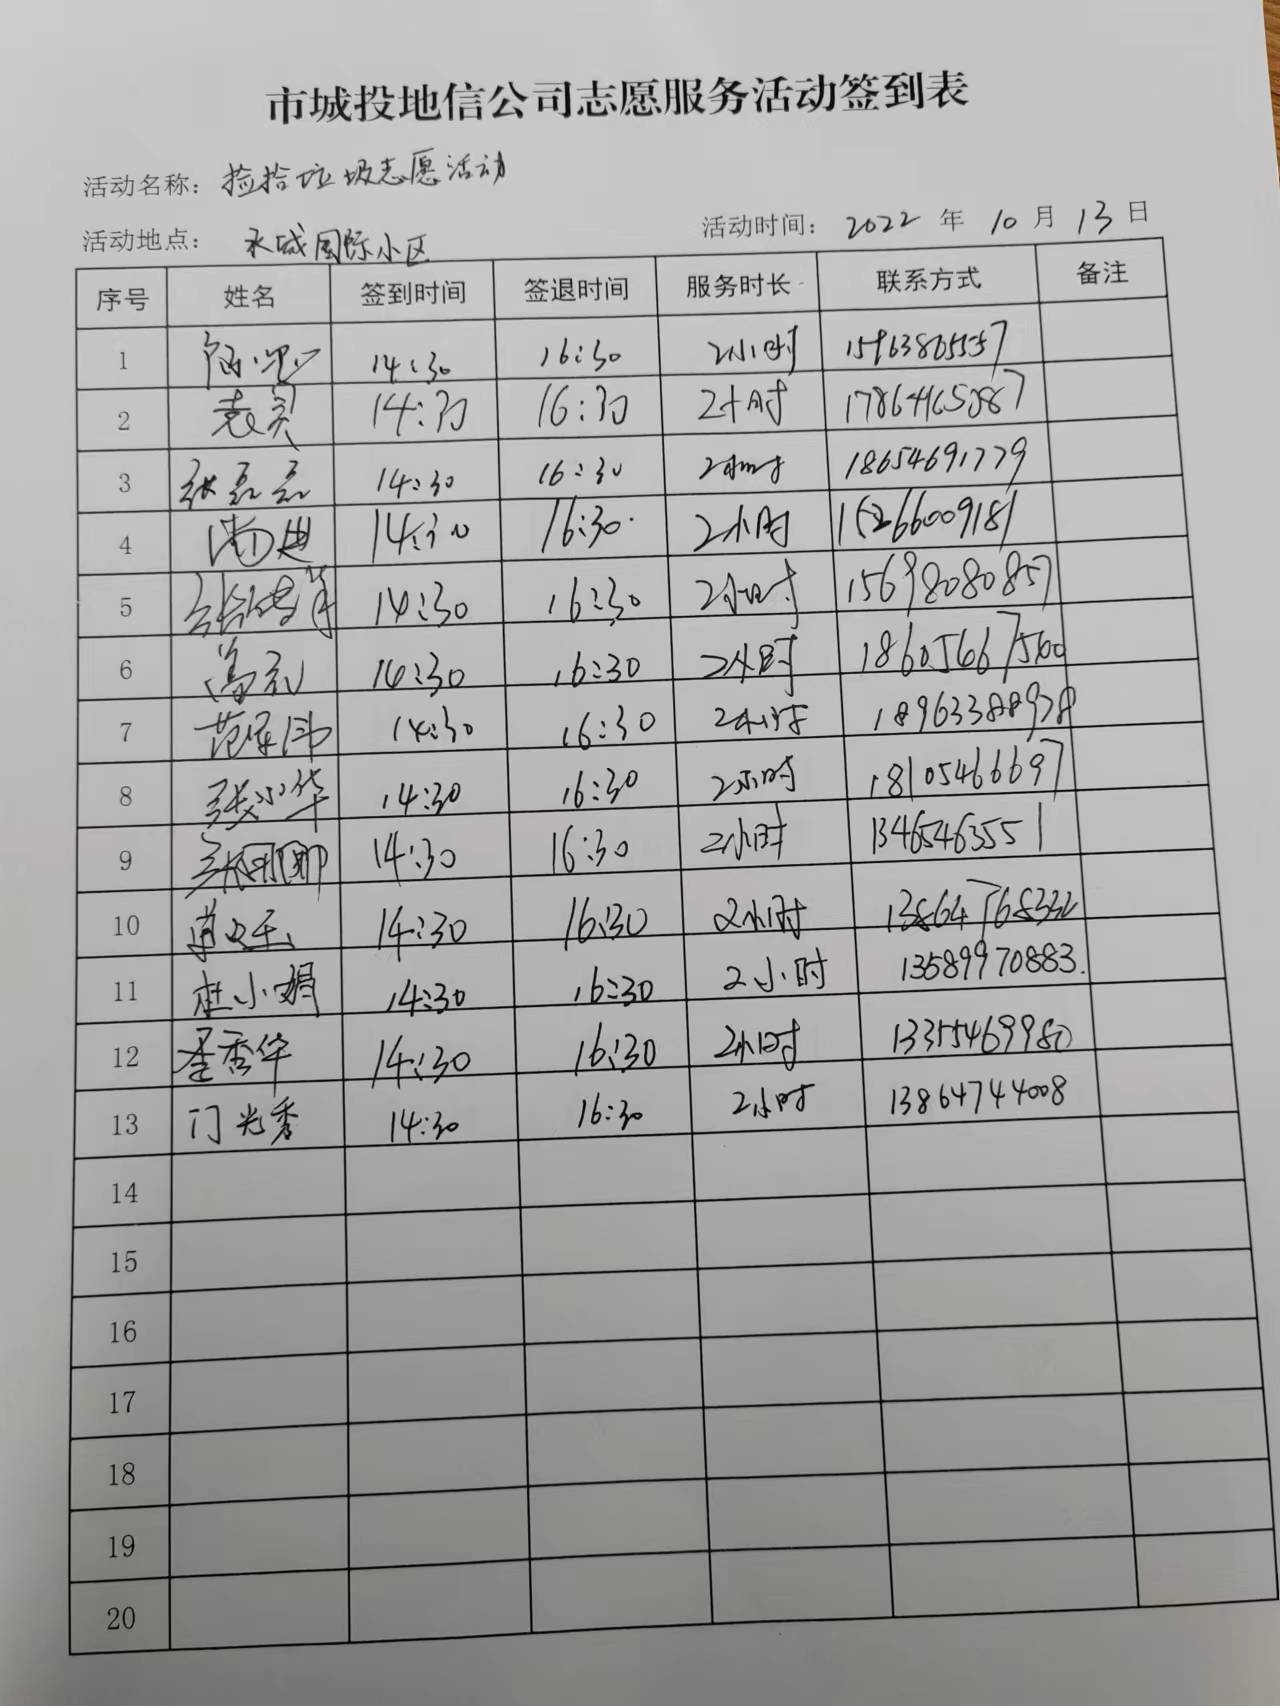 市城投地信公司志愿服务活动签到表
活动名称：捡拾垃圾志愿活动
活动地点：永城国际小区 活动时间：2022年10月13日
序号 姓名 签到时间 签退时间 服务时长 联系方式 备注
1 14:30 16:30 2小时
2 袁灵 14:30 16:30 2小时 17864465087
3 张磊磊 14:30 16:30 2小时 18654691779
4 14:30 16:30 2小时 15266009181
5 14:30 16:30 2小时 15698080857
6 14:30 16:30 2小时 18605667560
7 14:30 16:30 2小时 18963388938
8 张小华 14:30 16:30 2小时 18105466697
9 14:30 16:30 2小时 13465463551
10 14:30 16:30 2小时
11 杜小娟 14:30 16:30 2小时 13589970883
12 14:30 16:30 2小时 13355469980
13 门光秀 14:30 16:30 2小时 13864744008
14
15
16
17
18
19
20